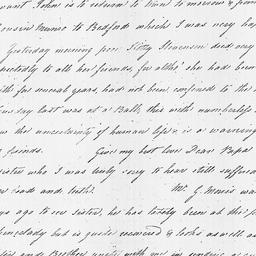 vant John is to return to town to morrow & 
cousin Munro to Bedford which I was very hap
Yesterday morning poor Hetty Stevenson died very
pectedly to all her friends, for altho' she had been
lth for several years, had not been confined to the
day last was at a Ball, this with numberless
ws the uncertainty of human life & is a warning
friends. Give my best love Dear Papa
sister who I was truly sorry to hear still suffered
r load and teeth. Mr. G. Morris was
ys ago to see sister, he has lately been at the
but is quite recovered & looks as well as
and Brother unite with me in